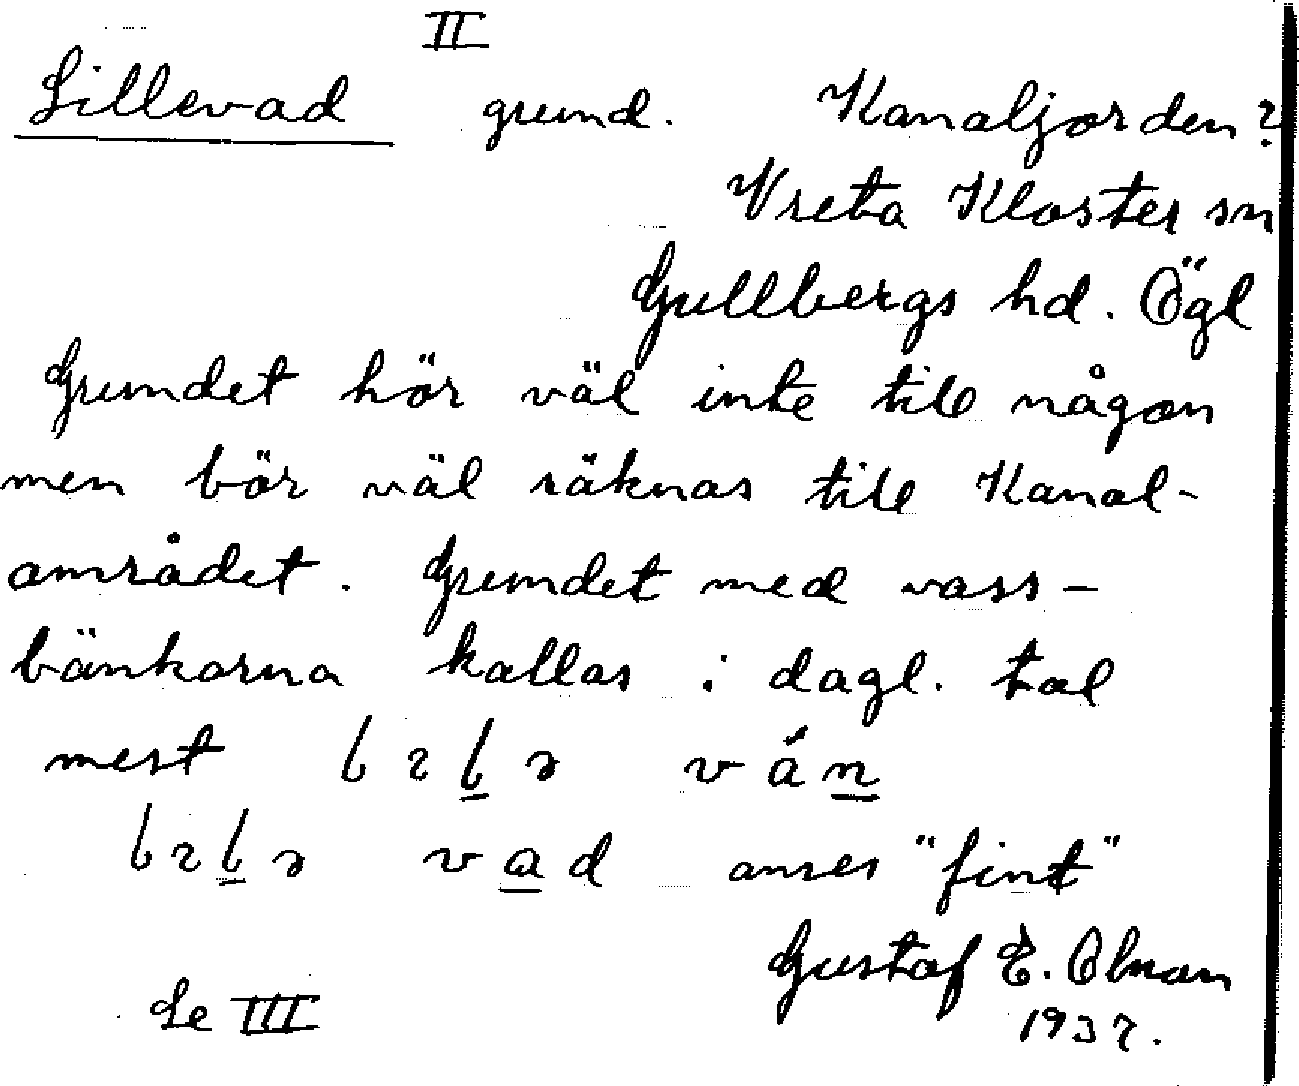 II
Lillevad grund. Kanaljorden?
Vreta Kloster sn
Gullbergs hd. Ögl
Grundet hör väl inte till någon
men bör väl räknas till Kanal-
området. Grundet med vass-
bänkarna kallas i dagl. tal
mest
anses "fint"
Gustaf E. Olman
Se III 1937.